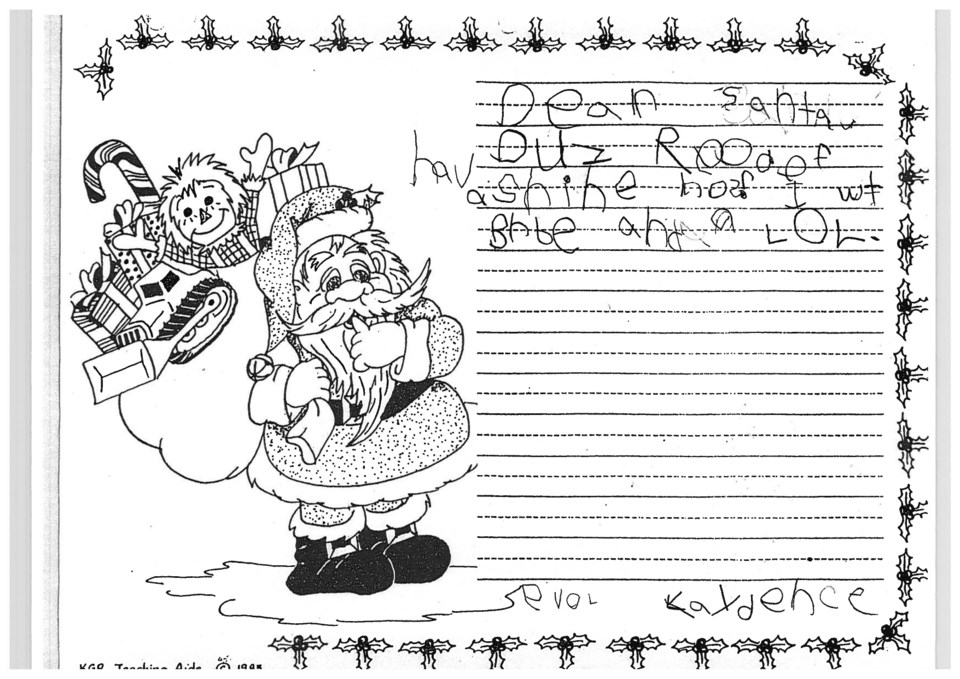 Dear Santa
Duz Rooodof
hav ashine nos I wt
Bhbe and a LOL.
evol Kaydence
KGP Teaching Aids © 1993